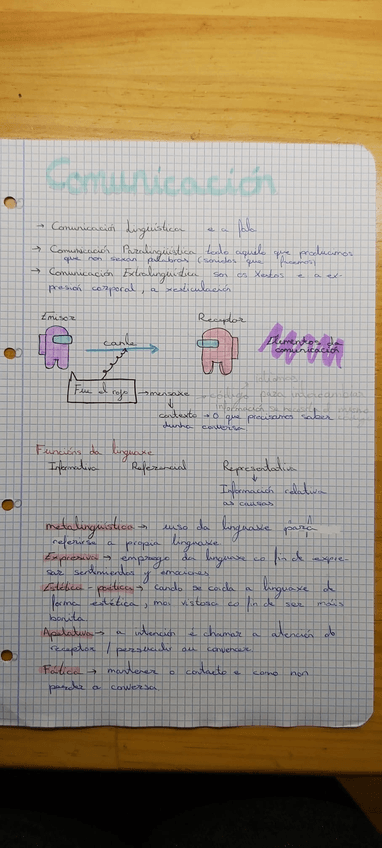 Comunicación
→ Comunicación Lingüística e a fala
→ Comunicación Paralingüística todo aquelo que producimos
que non sexan palabras (sonidos que facemos)
→ Comunicación Extralingüística son os xestos e a ex-
presión corporal, a xesticulación
Emisor
Receptor
canle
Elementos da
comunicación
Fue el rojo
→ mensaxe
código para intercambiar
información
contexto → O que precisamos saber
dunha conversa
Funcións da linguaxe
Informativa Referencial Representativa
Información relativa
as causas
metalingüística → uso da linguaxe para
referirse a propia linguaxe
Expresiva → emprego da linguaxe co fin de expre-
sar sentimentos y emociones
Estética - poética → cando se coida a linguaxe de
forma estética, moi vistosa co fin de ser máis
bonita.
Apelativa → a intención é chamar a atención do
receptor / persuadir ou convencer
Fática → mantener o contacto e como non
perder a conversa